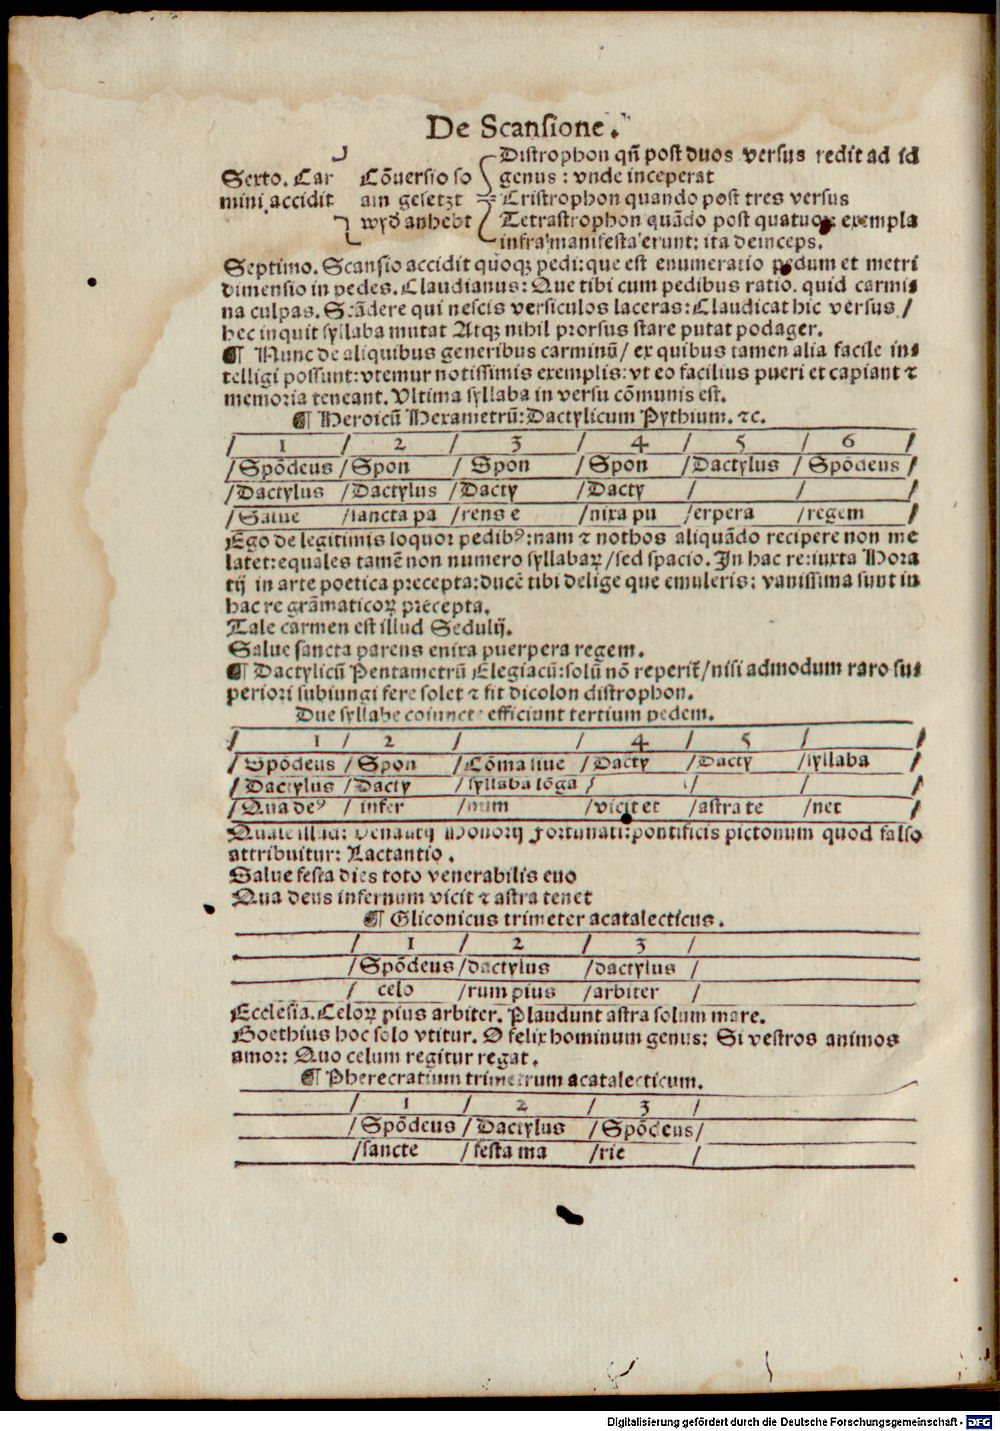 De Scansione.
Distrophon qñ post duos versus redit ad id
Sexto. Car Cõuersio so genus : vnde inceperat
mini accidit ain gesetzt Tristrophon quando post tres versus
wyd anhebt Tetrastrophon quãdo post quatuor: exempla
infra manifesta erunt: ita deinceps.
Septimo. Scansio accidit quoqꝫ pedi: que est enumeratio pedum et metri
dimensio in pedes. Claudianus: Que tibi cum pedibus ratio. quid carmi⸗
na culpas. Scãdere qui nescis versiculos laceras: Claudicat hic versus /
hec inquit syllaba mutat Atqꝫ nihil prorsus stare putat podager.
¶ Nunc de aliquibus generibus carminũ / ex quibus tamen alia facile in⸗
telligi possunt: vtemur notissimis exemplis: vt eo facilius pueri et capiant ⁊
memoria teneant. Vltima syllaba in versu cõmunis est.
¶ Heroicũ Hexametrũ: Dactylicum Pythium. ⁊c.
/ 1 / 2 / 3 / 4 / 5 / 6 /
/ Spõdeus / Spon / Spon / Spon / Dactylus / Spõdeus /
/ Dactylus / Dactylus / Dacty / Dacty / / /
/ Salue / sancta pa / rens e / nixa pu / erpera / regem /
Ego de legitimis loquor pedibꝰ: nam ⁊ nothos aliquãdo recipere non me
latet: equales tamẽ non numero syllabaꝝ / sed spacio. In hac re: iuxta Hora
tij in arte poetica precepta: ducẽ tibi delige que emuleris: vanissima sunt in
hac re grãmaticoꝝ precepta.
Tale carmen est illud Sedulij.
Salue sancta parens enixa puerpera regem.
¶ Dactylicũ Pentametrũ Elegiacũ: solũ nõ reperit̃ / nisi admodum raro su⸗
periori subiungi fere solet ⁊ fit dicolon distrophon.
Due syllabe coiuncte efficiunt tertium pedem.
/ 1 / 2 / / 4 / 5 / /
/ Spõdeus / Spon / Cõma siue / Dacty / Dacty / syllaba /
/ Dactylus / Dacty / syllaba lõga / / / /
/ Qua deꝰ / infer / num / vicit et / astra te / net /
Quale illud: Venantij Honorij Fortunati: pontificis pictonum quod falso
attribuitur: Lactantio.
Salue festa dies toto venerabilis euo
Qua deus infernum vicit ⁊ astra tenet
¶ Gliconicus trimeter acatalecticus.
/ 1 / 2 / 3 /
/ Spõdeus / dactylus / dactylus /
/ celo / rum pius / arbiter /
Ecclesia. Celoꝝ pius arbiter. Plaudunt astra solum mare.
Boethius hoc solo vtitur. O felix hominum genus: Si vestros animos
amor: Quo celum regitur regat.
¶ Pherecratium trimetrum acatalecticum.
/ 1 / 2 / 3 /
/ Spõdeus / Dactylus / Spõdeus /
/ sancte / festa ma / rie /
Digitalisierung gefördert durch die Deutsche Forschungsgemeinschaft - DFG